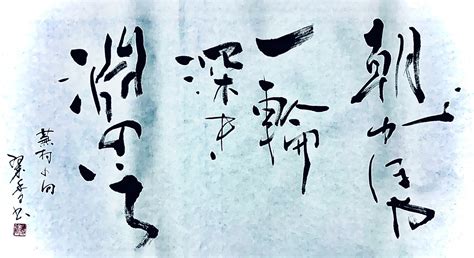 朝がほや
一輪
深き
淵のいろ
蕪村の句